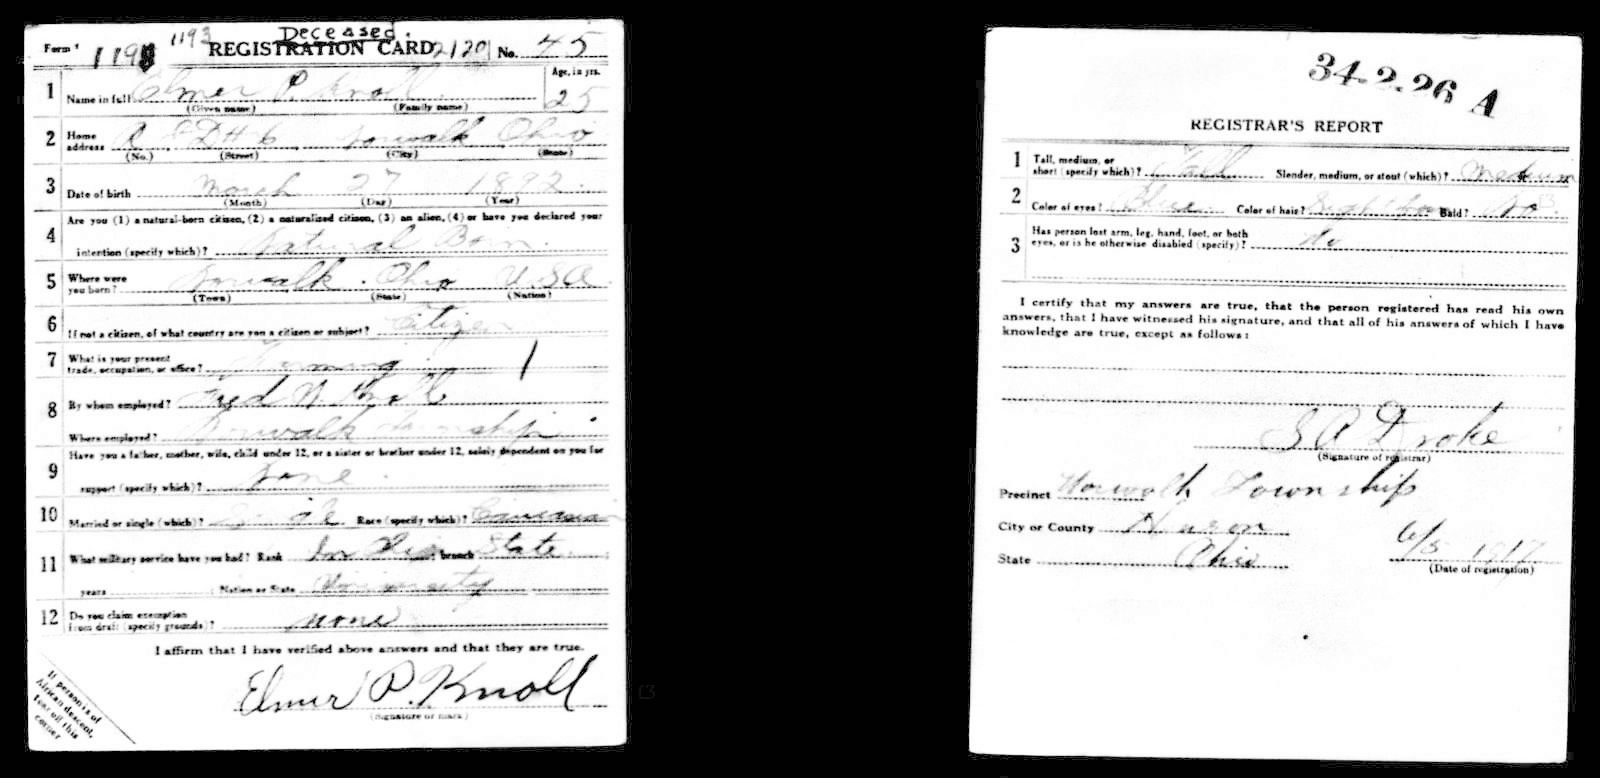 Deceased.
Form 1 1193 1193 REGISTRATION CARD 2120 No. 45
1 Name in full Elmer P. Knoll Age, in yrs. 25
(Given name) (Family name)
2 Home address R F D # 6 Norwalk Ohio
(No.) (Street) (City) (State)
3 Date of birth March 27 1892
(Month) (Day) (Year)
4 Are you (1) a natural-born citizen, (2) a naturalized citizen, (3) an alien, (4) or have you declared your
intention (specify which)? Natural Born
5 Where were you born? Norwalk Ohio U.S.A.
(Town) (State) (Nation)
6 If not a citizen, of what country are you a citizen or subject? Citizen
7 What is your present trade, occupation, or office? Farming 1
8 By whom employed? Fred W Knoll
Where employed? Norwalk Township
9 Have you a father, mother, wife, child under 12, or a sister or brother under 12, solely dependent on you for
support (specify which)? None
10 Married or single (which)? Single Race (specify which)? Caucasian
11 What military service have you had? Rank In Ohio; branch State;
years; Nation or State University
12 Do you claim exemption from draft (specify grounds)? none
I affirm that I have verified above answers and that they are true.
Elmer P. Knoll
(Signature or mark)
If person is of
African descent,
tear off this
corner
34-2-26 A
REGISTRAR'S REPORT
1 Tall, medium, or short (specify which)? Tall Slender, medium, or stout (which)? Medium
2 Color of eyes? Blue Color of hair? Light Brown Bald? No
3 Has person lost arm, leg, hand, foot, or both
eyes, or is he otherwise disabled (specify)? No
I certify that my answers are true, that the person registered has read his own
answers, that I have witnessed his signature, and that all of his answers of which I have
knowledge are true, except as follows:
S A Drake
(Signature of registrar)
Precinct Norwalk Township
City or County Huron
State Ohio 6/5 1917
(Date of registration)